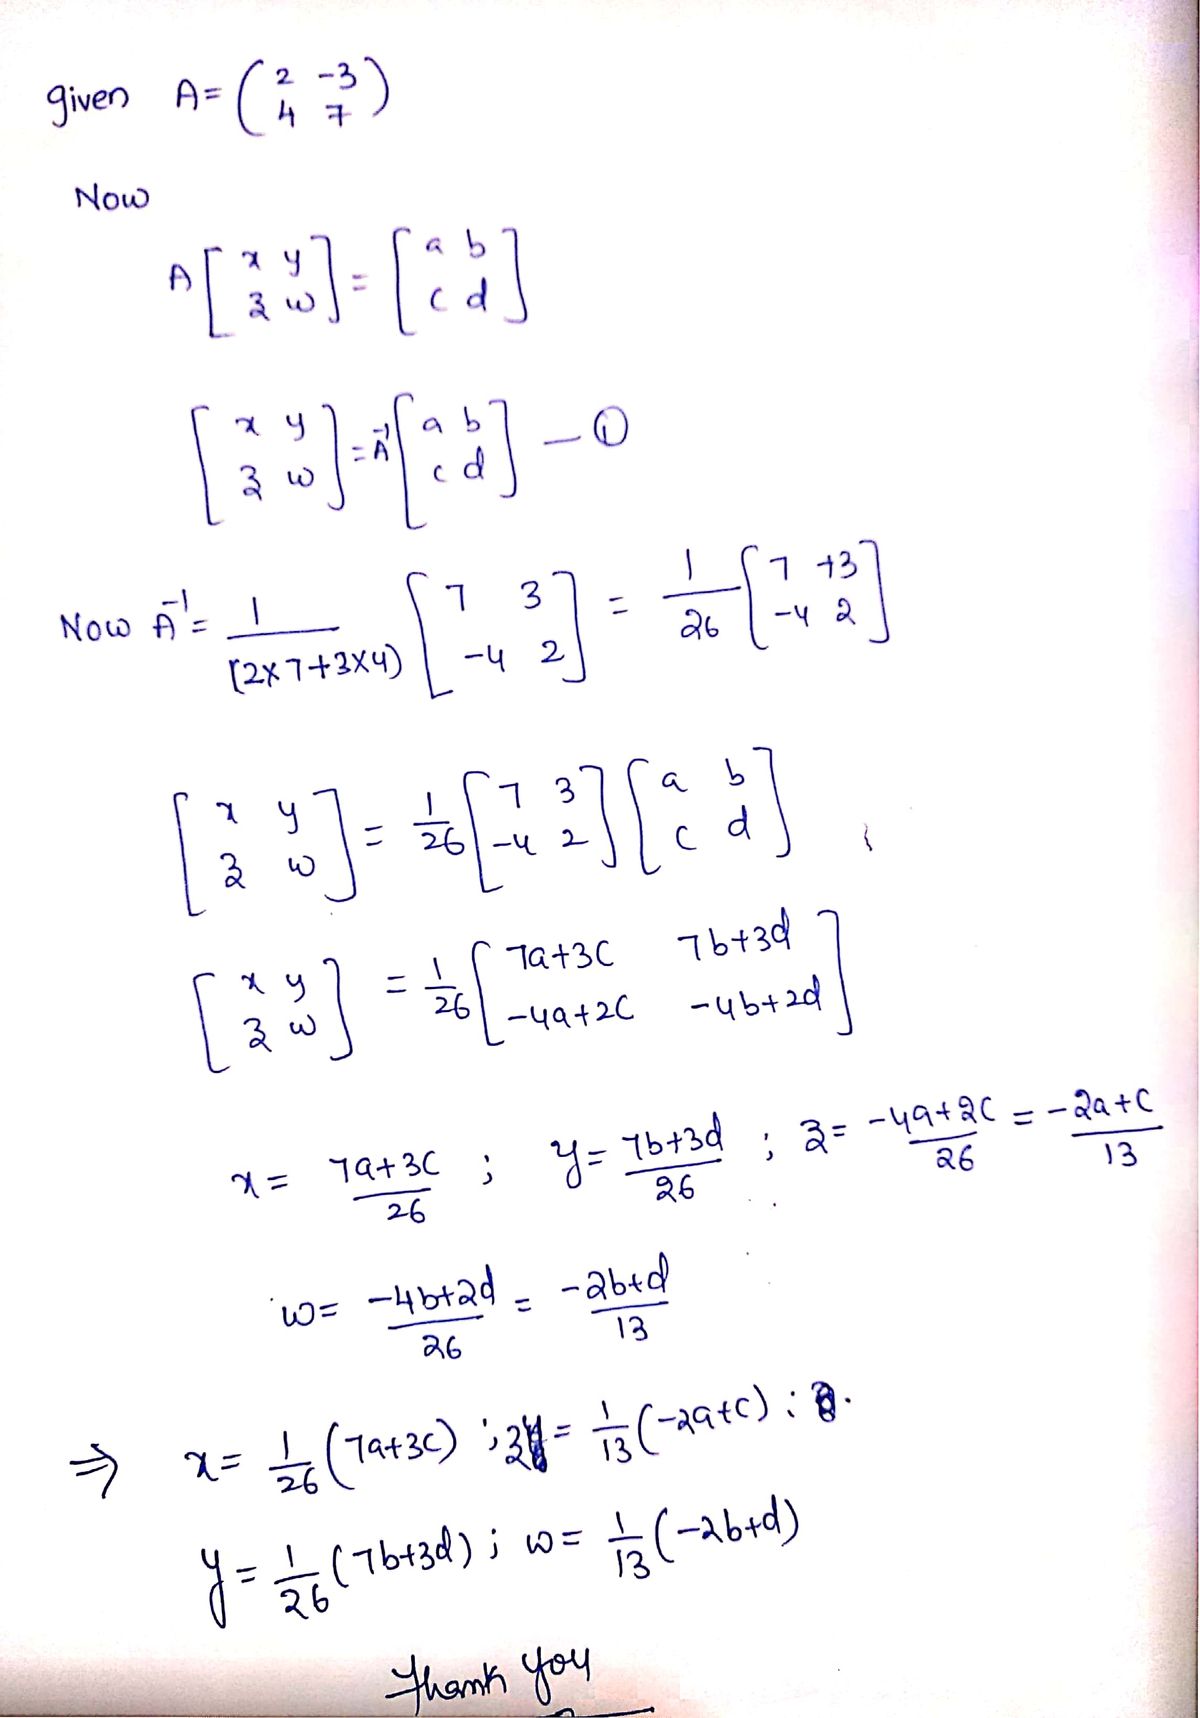 given A = ( 2 -3
4 7 )
Now
A [ x y
z w ] = [ a b
c d ]
[ x y
z w ] = A⁻¹ [ a b
c d ] — ①
Now A⁻¹ = 1/(2×7+3×4) [ 7 3
-4 2 ] = 1/26 [ 7 +3
-4 2 ]
[ x y
z w ] = 1/26 [ 7 3
-4 2 ] [ a b
c d ]
[ x y
z w ] = 1/26 [ 7a+3c 7b+3d
-4a+2c -4b+2d ]
x = 7a+3c/26 ; y = 7b+3d/26 ; z = -4a+2c/26 = -2a+c/13
w = -4b+2d/26 = -2b+d/13
⇒ x = 1/26 (7a+3c) ; z = 1/13 (-2a+c) ;
y = 1/26 (7b+3d) ; w = 1/13 (-2b+d)
Thank you